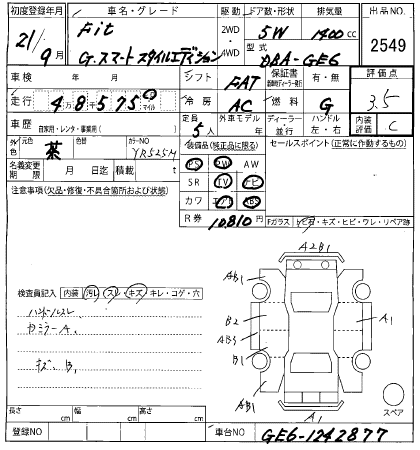 初度登録年月
21年 9月
車名・グレード
Fit
G.スマートスタイルエディション
駆動
2WD
4WD
ドア数・形状
5W
排気量
1300cc
型式
DBA-GE6
出品NO.
2549
車検 年 月
シフト
FAT
保証書
有・無
評価点
3.5
走行
48575
km
マイル
冷房
AC
燃料
G
車歴
自家用・レンタ・事業用( )
定員
5人
外車モデル
年
ディーラー
並行
ハンドル
左・右
内装評価
C
外色
元色
茶
色替
カラーNO
YR525M
名義変更期限
月 日迄
積載
t
装備品(純正品に限る)
PS PW AW
SR TV ナビ
カワ エアB ABS
R券
10810円
セールスポイント(正常に作動するもの)
注意事項(欠品・修復・不具合箇所および状態)
Fガラス
ヒビ・キズ・ヒビ・ワレ・リペア跡
検査員記入
内装
汚レ・スレ・キズ・キレ・コゲ・穴
ハンドルスレ
Cミラー A1
キズ. B1
A2B1
AB1
AB1
B2
AB3
B1
A1
AB1
A1
スペア
長さ
cm
幅
cm
高さ
cm
登録NO
車台NO
GE6-1242877